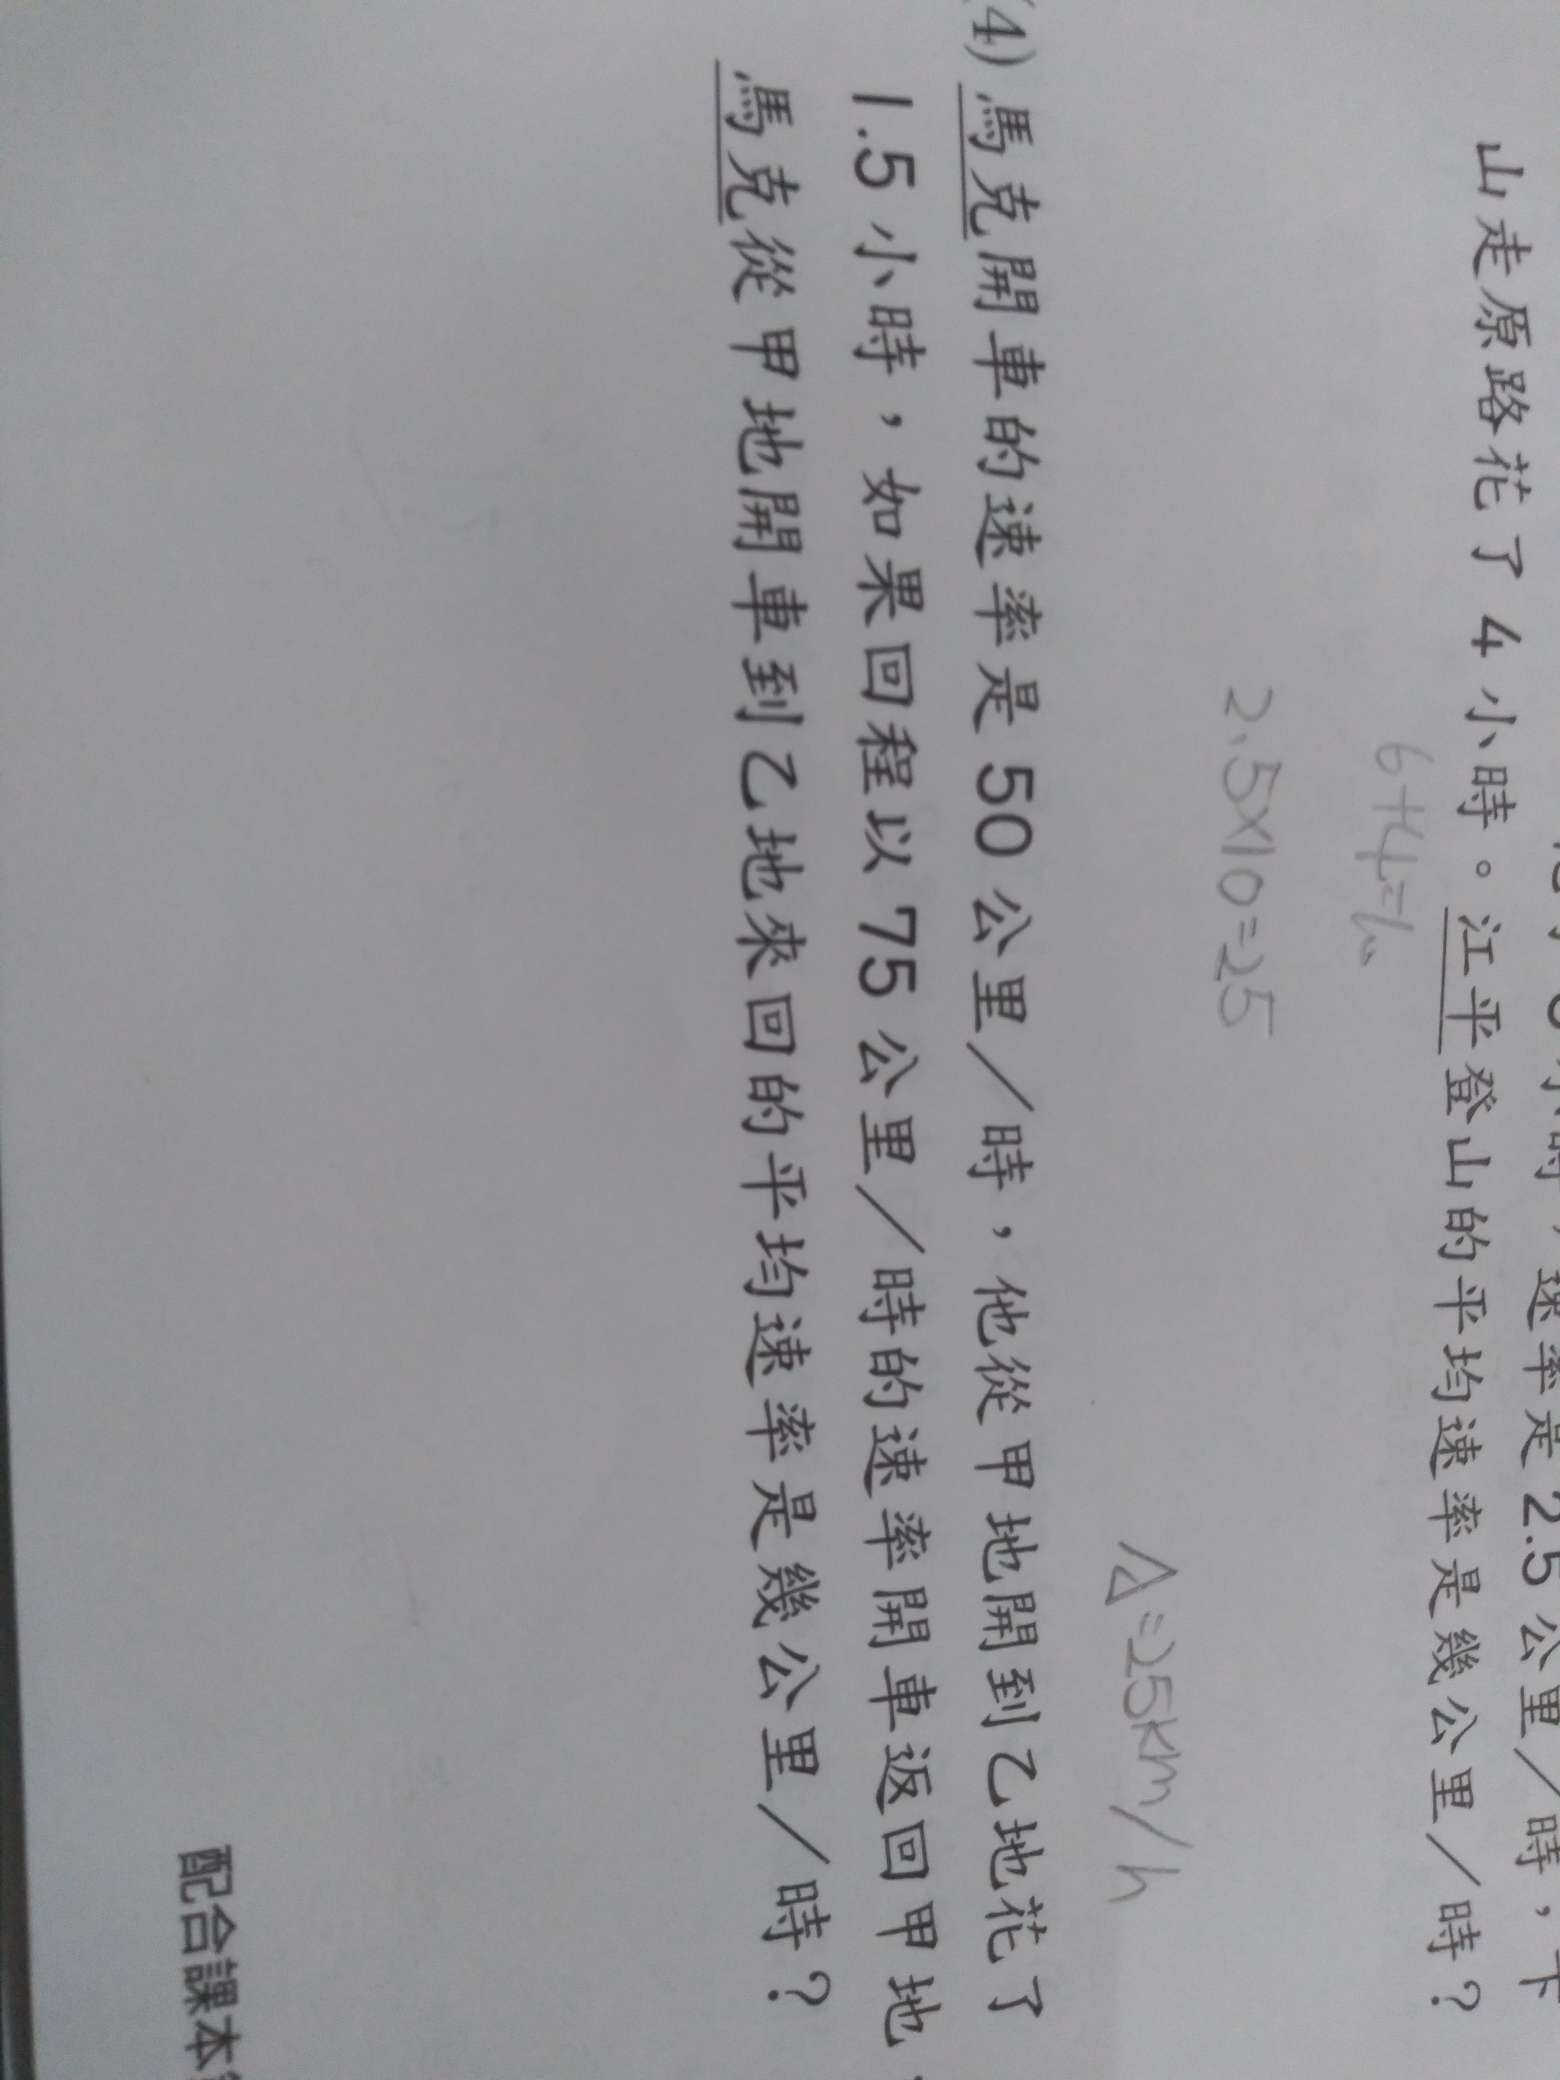 山走原路花了 4 小時。江平登山的平均速率是幾公里／時？
6+4=10
2.5×10=25
A=25km/h
(4) 馬克開車的速率是 50 公里／時，他從甲地開到乙地花了
1.5 小時，如果回程以 75 公里／時的速率開車返回甲地，
馬克從甲地開車到乙地來回的平均速率是幾公里／時？
配合課本